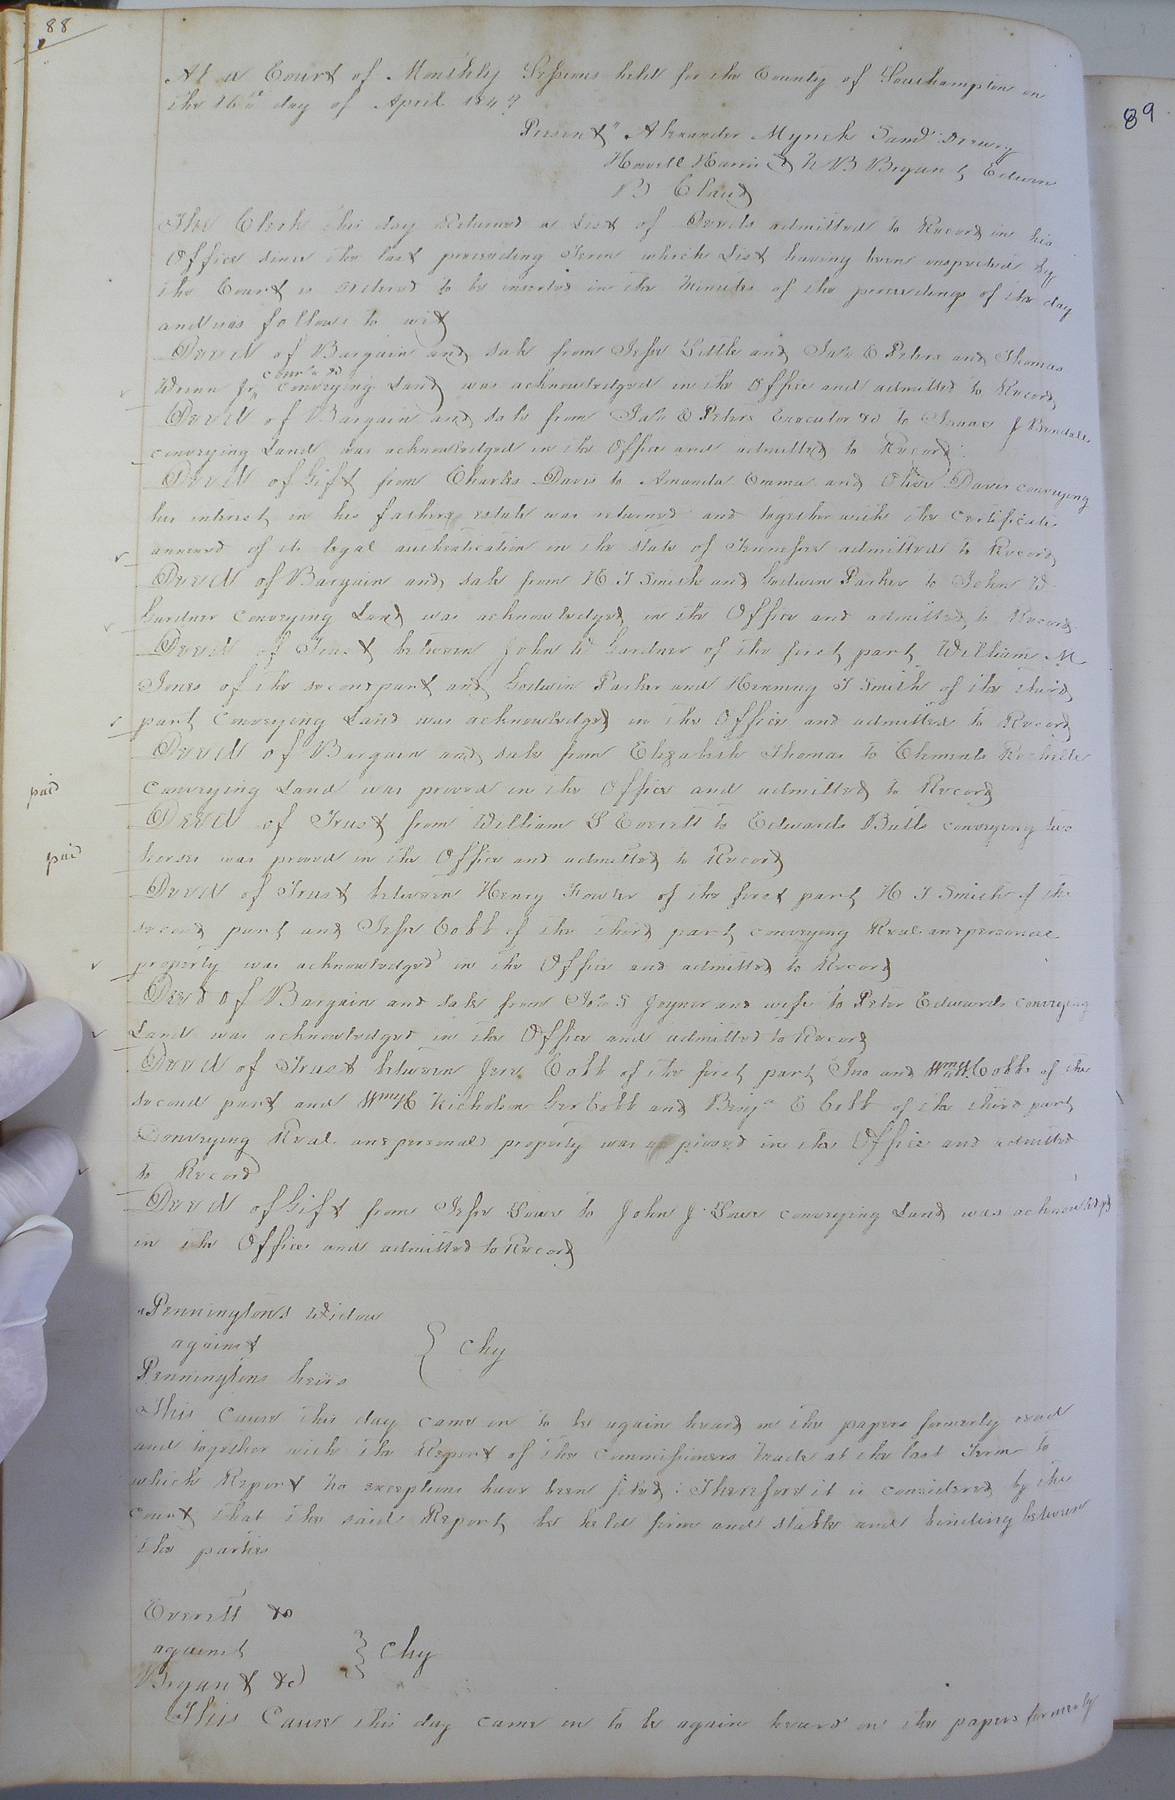 88
At a Court of Monthly Sessions held for the County of Southampton on
the 16th day of April 1849
Present Alexander Myrick Saml Drewry
Howell Harris & N B Bryant Edwin
B Claud
The Clerk this day returned a List of Deeds admitted to Record in his
Office since the last preceeding Term which List having been inspected by
the Court is ordered to be inserted in the Minutes of the proceedings of the day
and is as follows to wit
Deed of Bargain and sale from Jesse Little and Jas E Peters and Thomas
Wrenn Jr conveying Land was acknowledged in the Office and admitted to Record
Deed of Bargain and sale from Jas E Peters Executor &c to James J
conveying Land was acknowledged in the Office and admitted to Record
Deed of Gift from Charles Davis to Amanda Emma and Olive Davis conveying
his interest in his fathers estate was returned and together with the certificate
annexed of its legal authentication in the State of Tennessee admitted to Record
Deed of Bargain and sale from H T Smith and Godwin Parker to John W
Gardner conveying Land was acknowledged in the Office and admitted to Record
Deed of Trust between John W Gardner of the first part William M
Jones of the second part and Godwin Parker and Henning T Smith of the third
part conveying Land was acknowledged in the Office and admitted to Record
Deed of Bargain and sale from Elizabeth Thomas to Clements Rochelle
paid
conveying Land was proved in the Office and admitted to Record
Deed of Trust from William G Everett to Edwards Butts conveying two
paid
horses was proved in the Office and admitted to Record
Deed of Trust between Henry Fowler of the first part H T Smith of the
second part and Jesse Cobb of the third part conveying Real and personal
property was acknowledged in the Office and admitted to Record
Deed of Bargain and sale from Jno S Joyner and wife to Peter Edwards conveying
Land was acknowledged in the Office and admitted to Record
Deed of Trust between Jere Cobb of the first part Jno and Wm H Cobbs of the
second part and Wm H Nicholson Geo Cobb and Benja E Cobb of the third part
Conveying Real and personal property was proved in the Office and admitted
to Record
Deed of Gift from Jesse to John J conveying Land was acknowledged
in the Office and admitted to Record
Penningtons Widow
against } Chy
Penningtons heirs
This Cause this day came on to be again heard on the papers formerly read
and together with the Report of the Commissioners made at the last Term to
which Report no exceptions have been filed: Therefore it is considered by the
court that the said Report be held firm and stable and binding between
the parties
Everett &c
against } Chy
Bryant &c
This Cause this day came on to be again heard on the papers formerly
89